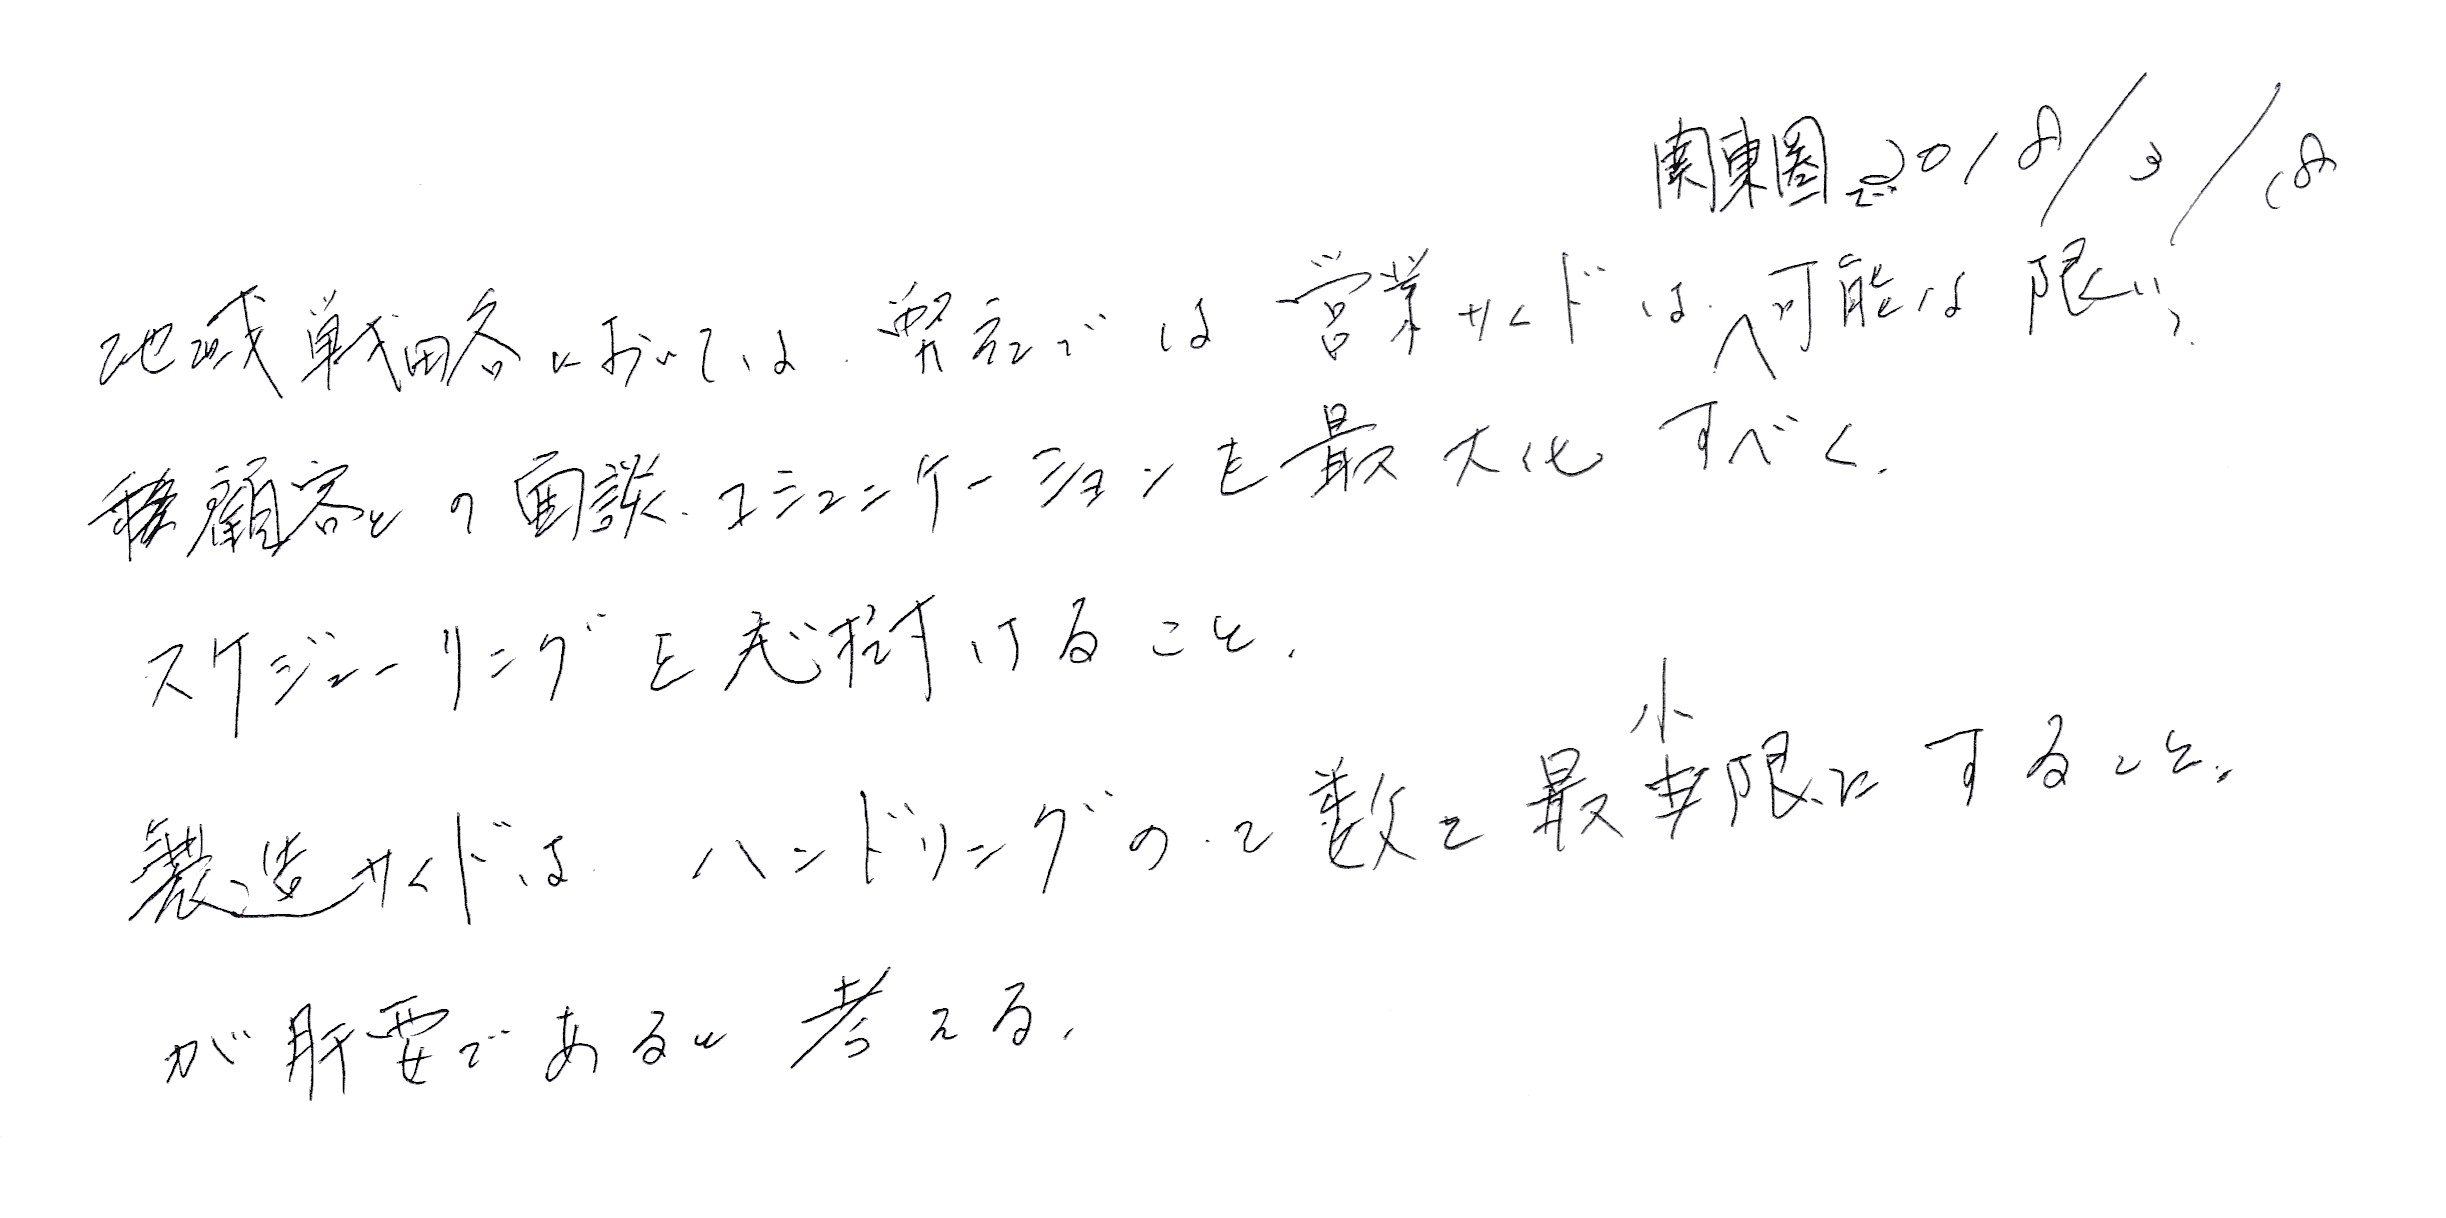 2018/3/18
関東圏で
地域戦略においては、弊社では営業サイドは、可能な限り、
顧客との面談、コミュニケーションを最大化すべく、
スケジューリングを心掛けること。
製造サイドは、ハンドリングの数を最小限にすること。
が肝要であると考える。